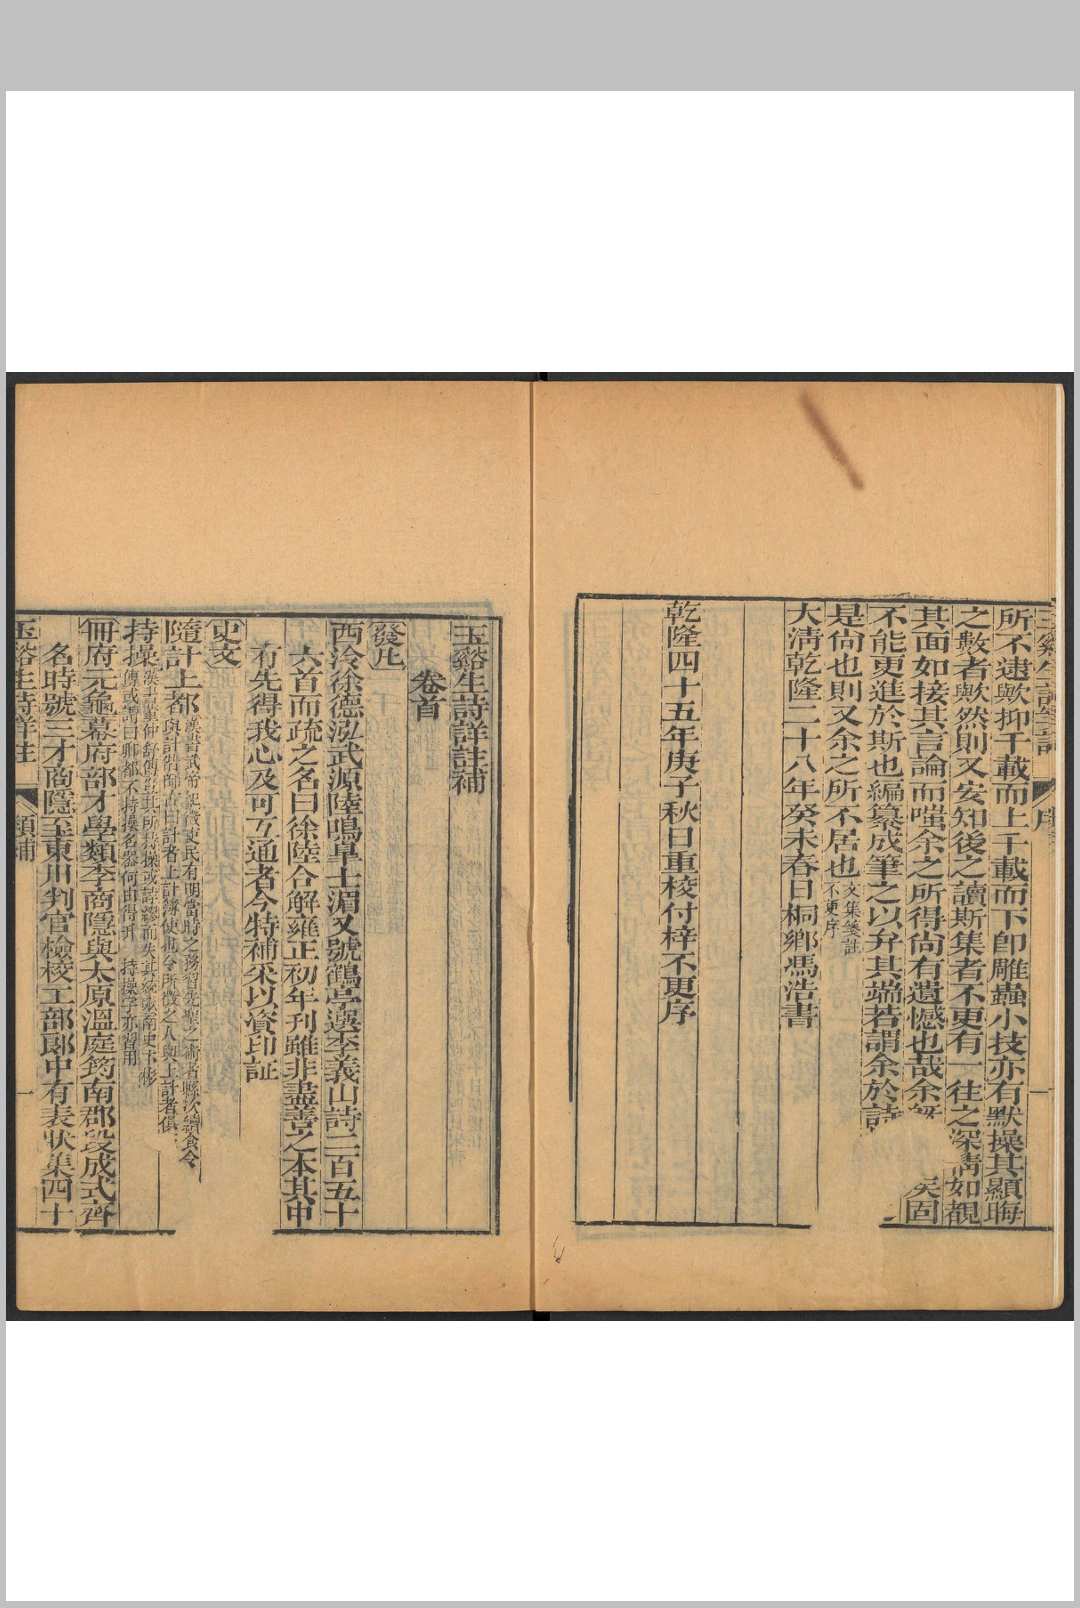 所不逮歟抑千載而上千載而下即雕蟲小技亦有默操其顯晦
之數者歟然則又安知後之讀斯集者不更有一往之深情如覩
其面如接其言論而嗤余之所得尚有遺憾也哉余
不能更進於斯也編纂成筆之以弁其端若謂余於詩
是尚也則又余之所不居也文集箋註不更序
大清乾隆二十八年癸未春日桐鄉馮浩書
乾隆四十五年庚子秋日重校付梓不更序
玉谿生詩詳註補
卷首
發凡
西泠徐德泓武源陸鳴皋士湄又號鶴亭選李義山詩二百五十
六首而疏之名曰徐陸合解雍正初年刊雖非盡善之本其中
有先得我心及可互通者今特補采以資印証
史文
隨計上都漢書武帝紀徵吏民有明當時之務習先聖之術者縣次續食令
與計偕師古曰計者上計簿使也令所徵之人與上計者俱
持操
冊府元龜幕府部才學類李商隱與太原溫庭筠南郡段成式齊
名時號三才商隱至東川判官檢校工部郎中有表狀集四十
玉谿生詩詳註
補
一